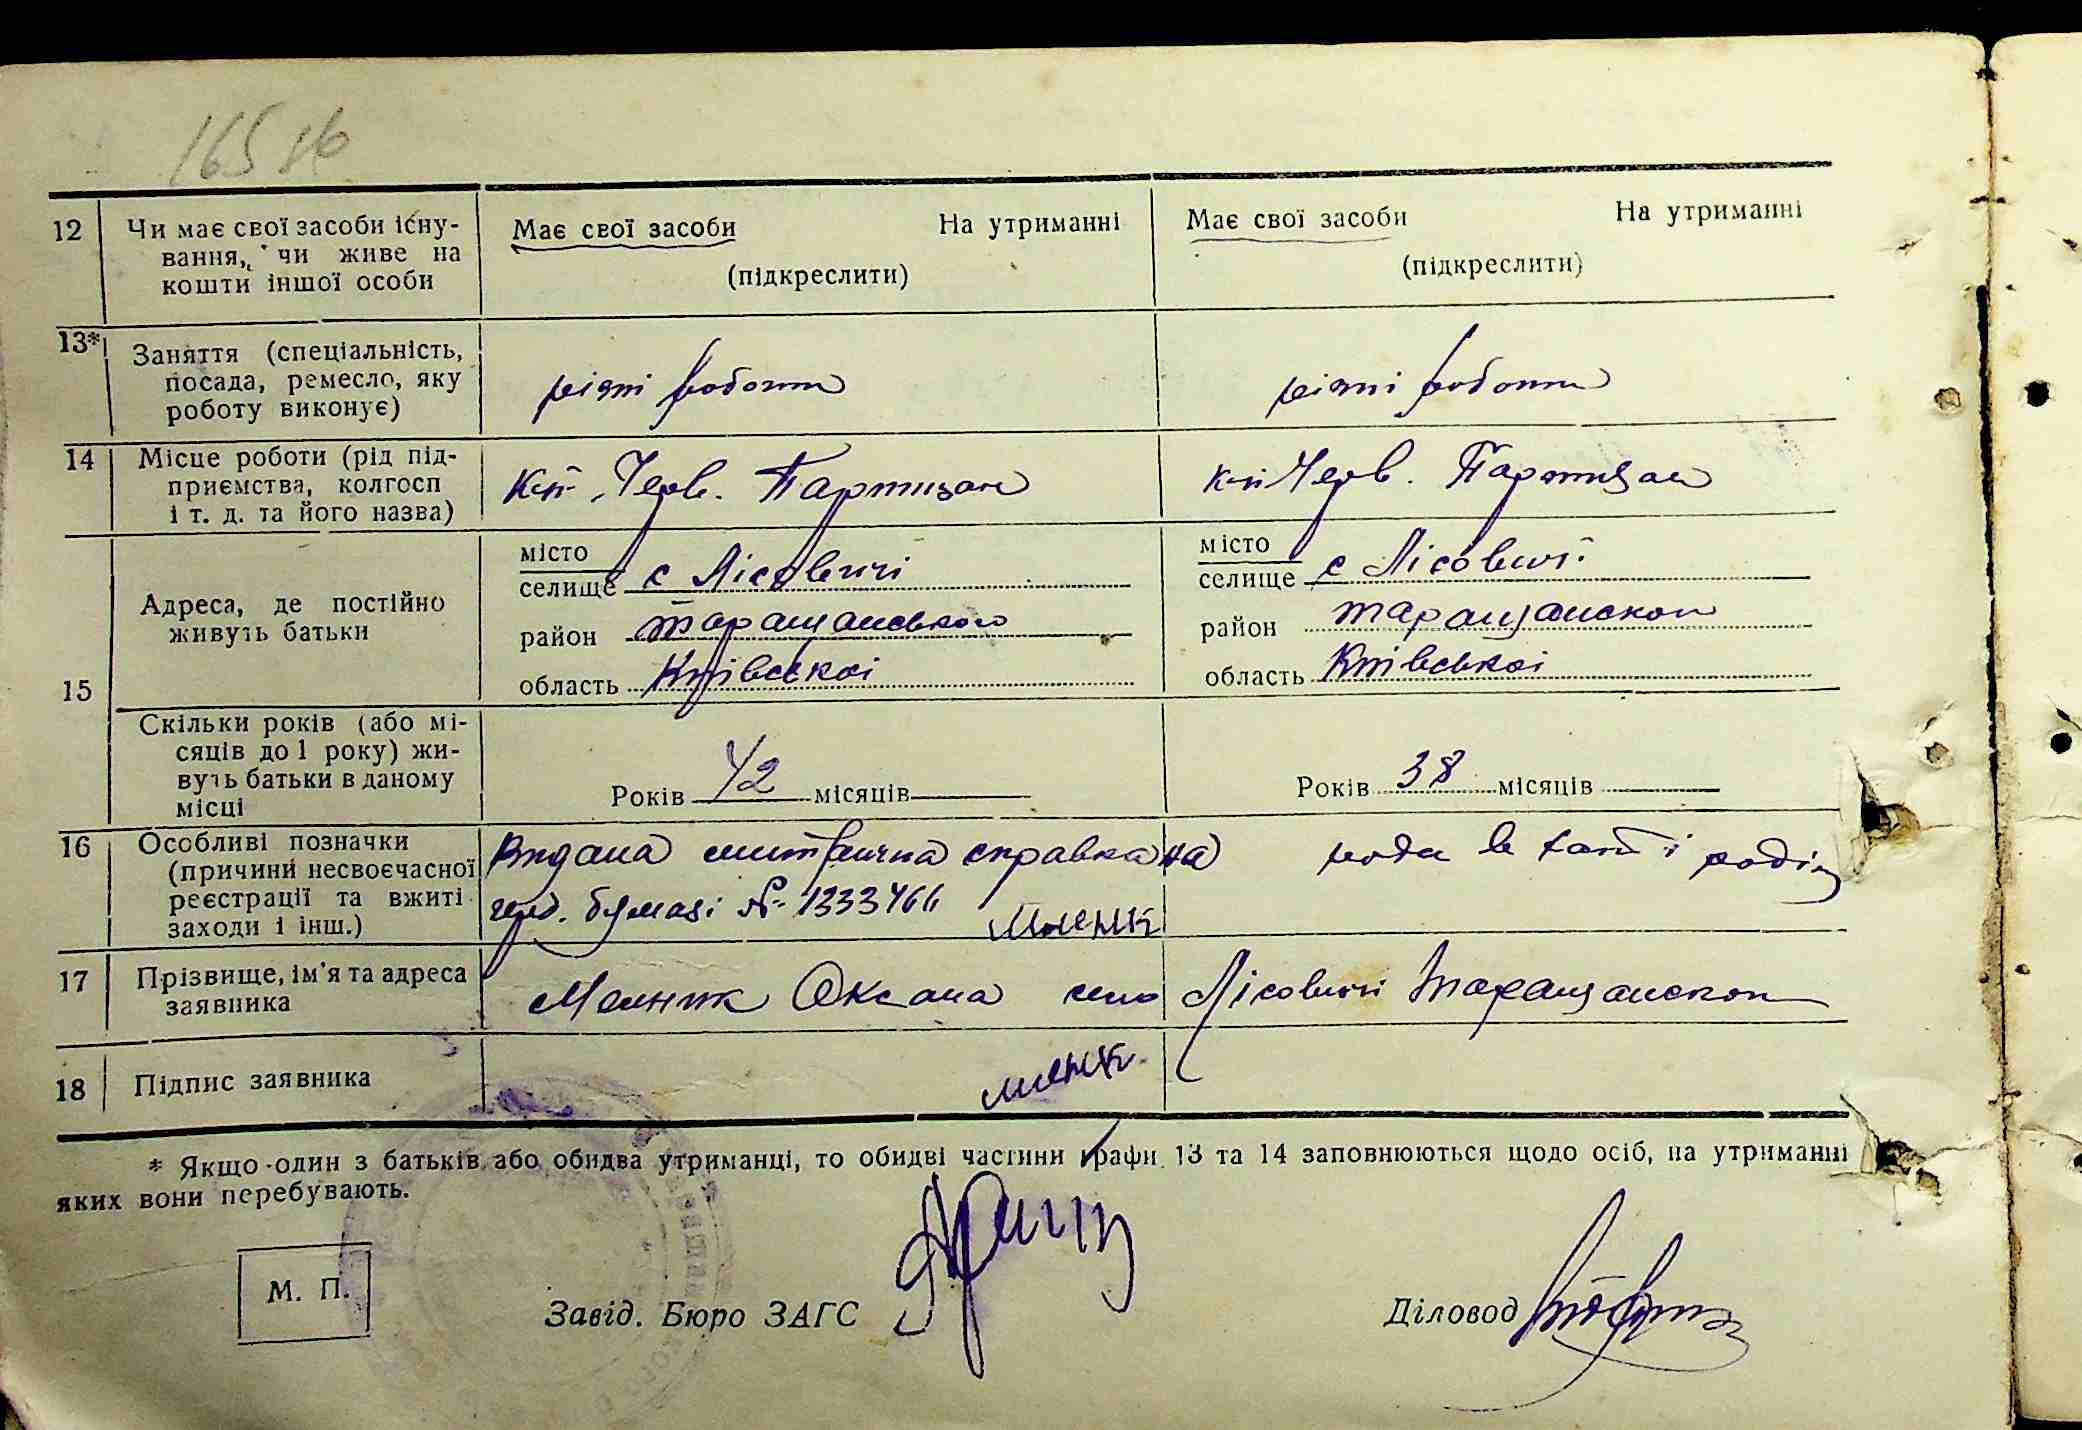 12 Чи має свої засоби існу-
вання, чи живе на
кошти іншої особи
Має свої засоби На утриманні
(підкреслити)
Має свої засоби На утриманні
(підкреслити)
13* Заняття (спеціальність,
посада, ремесло, яку
роботу виконує)
різні роботи
різні роботи
14 Місце роботи (рід під-
приємства, колгосп
і т. д. та його назва)
Черв. Партизан
Черв. Партизан
15 Адреса, де постійно
живуть батьки
місто
селище с Лісовичі
район таращанського
область Київської
місто
селище с Лісовичі
район таращанског
область Київської
Скільки років (або мі-
сяців до 1 року) жи-
вуть батьки в даному
місці
Років 42 місяців
Років 38 місяців
16 Особливі позначки
(причини несвоєчасної
реєстрації та вжиті
заходи і інш.)
Видана справка на
бумазі №
17 Прізвище, ім'я та адреса
заявника
Оксана село Лісовичі Таращанског
18 Підпис заявника
* Якщо один з батьків або обидва утриманці, то обидві частини графи 13 та 14 заповнюються щодо осіб, на утриманні
яких вони перебувають.
М. П.
Завід. Бюро ЗАГС
Діловод